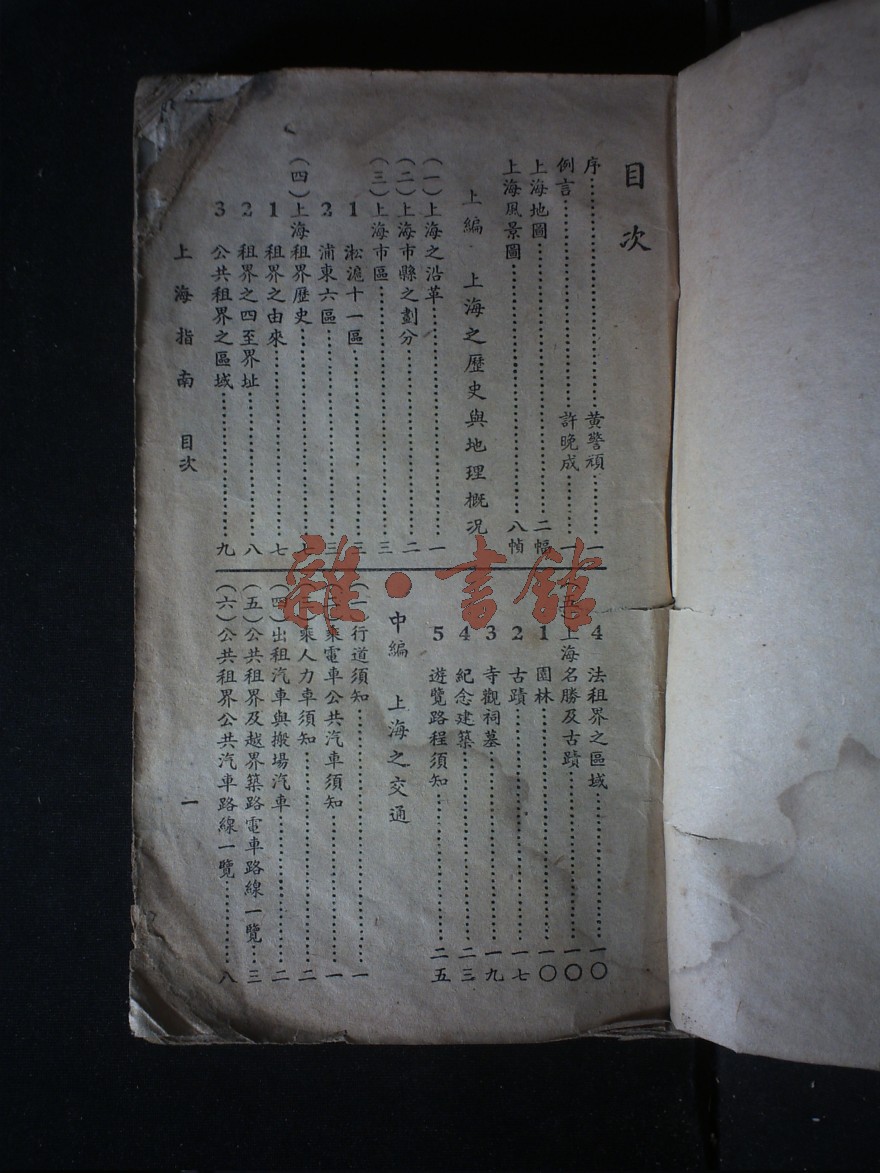 目次
序……黃警頑……一
例言……許晚成……一
上海地圖……二幅
上海風景圖……八幀
上編 上海之歷史與地理概況
(一)上海之沿革……一
(二)上海市縣之劃分……二
(三)上海市區……三
1 淞滬十一區……三
2 浦東六區……三
(四)上海租界歷史……七
1 租界之由來……七
2 租界之四至界址……八
3 公共租界之區域……九
4 法租界之區域……一〇
(五)上海名勝及古蹟……一〇
1 園林……一〇
2 古蹟……一七
3 寺觀祠墓……一九
4 紀念建築……二三
5 遊覽路程須知……二五
中編 上海之交通
(一)行道須知……一
(二)乘電車公共汽車須知……一
(三)乘人力車須知……二
(四)出租汽車與搬場汽車……二
(五)公共租界及越界築路電車路線一覽……三
(六)公共租界公共汽車路線一覽……八
上海指南 目次
一
雜·書館